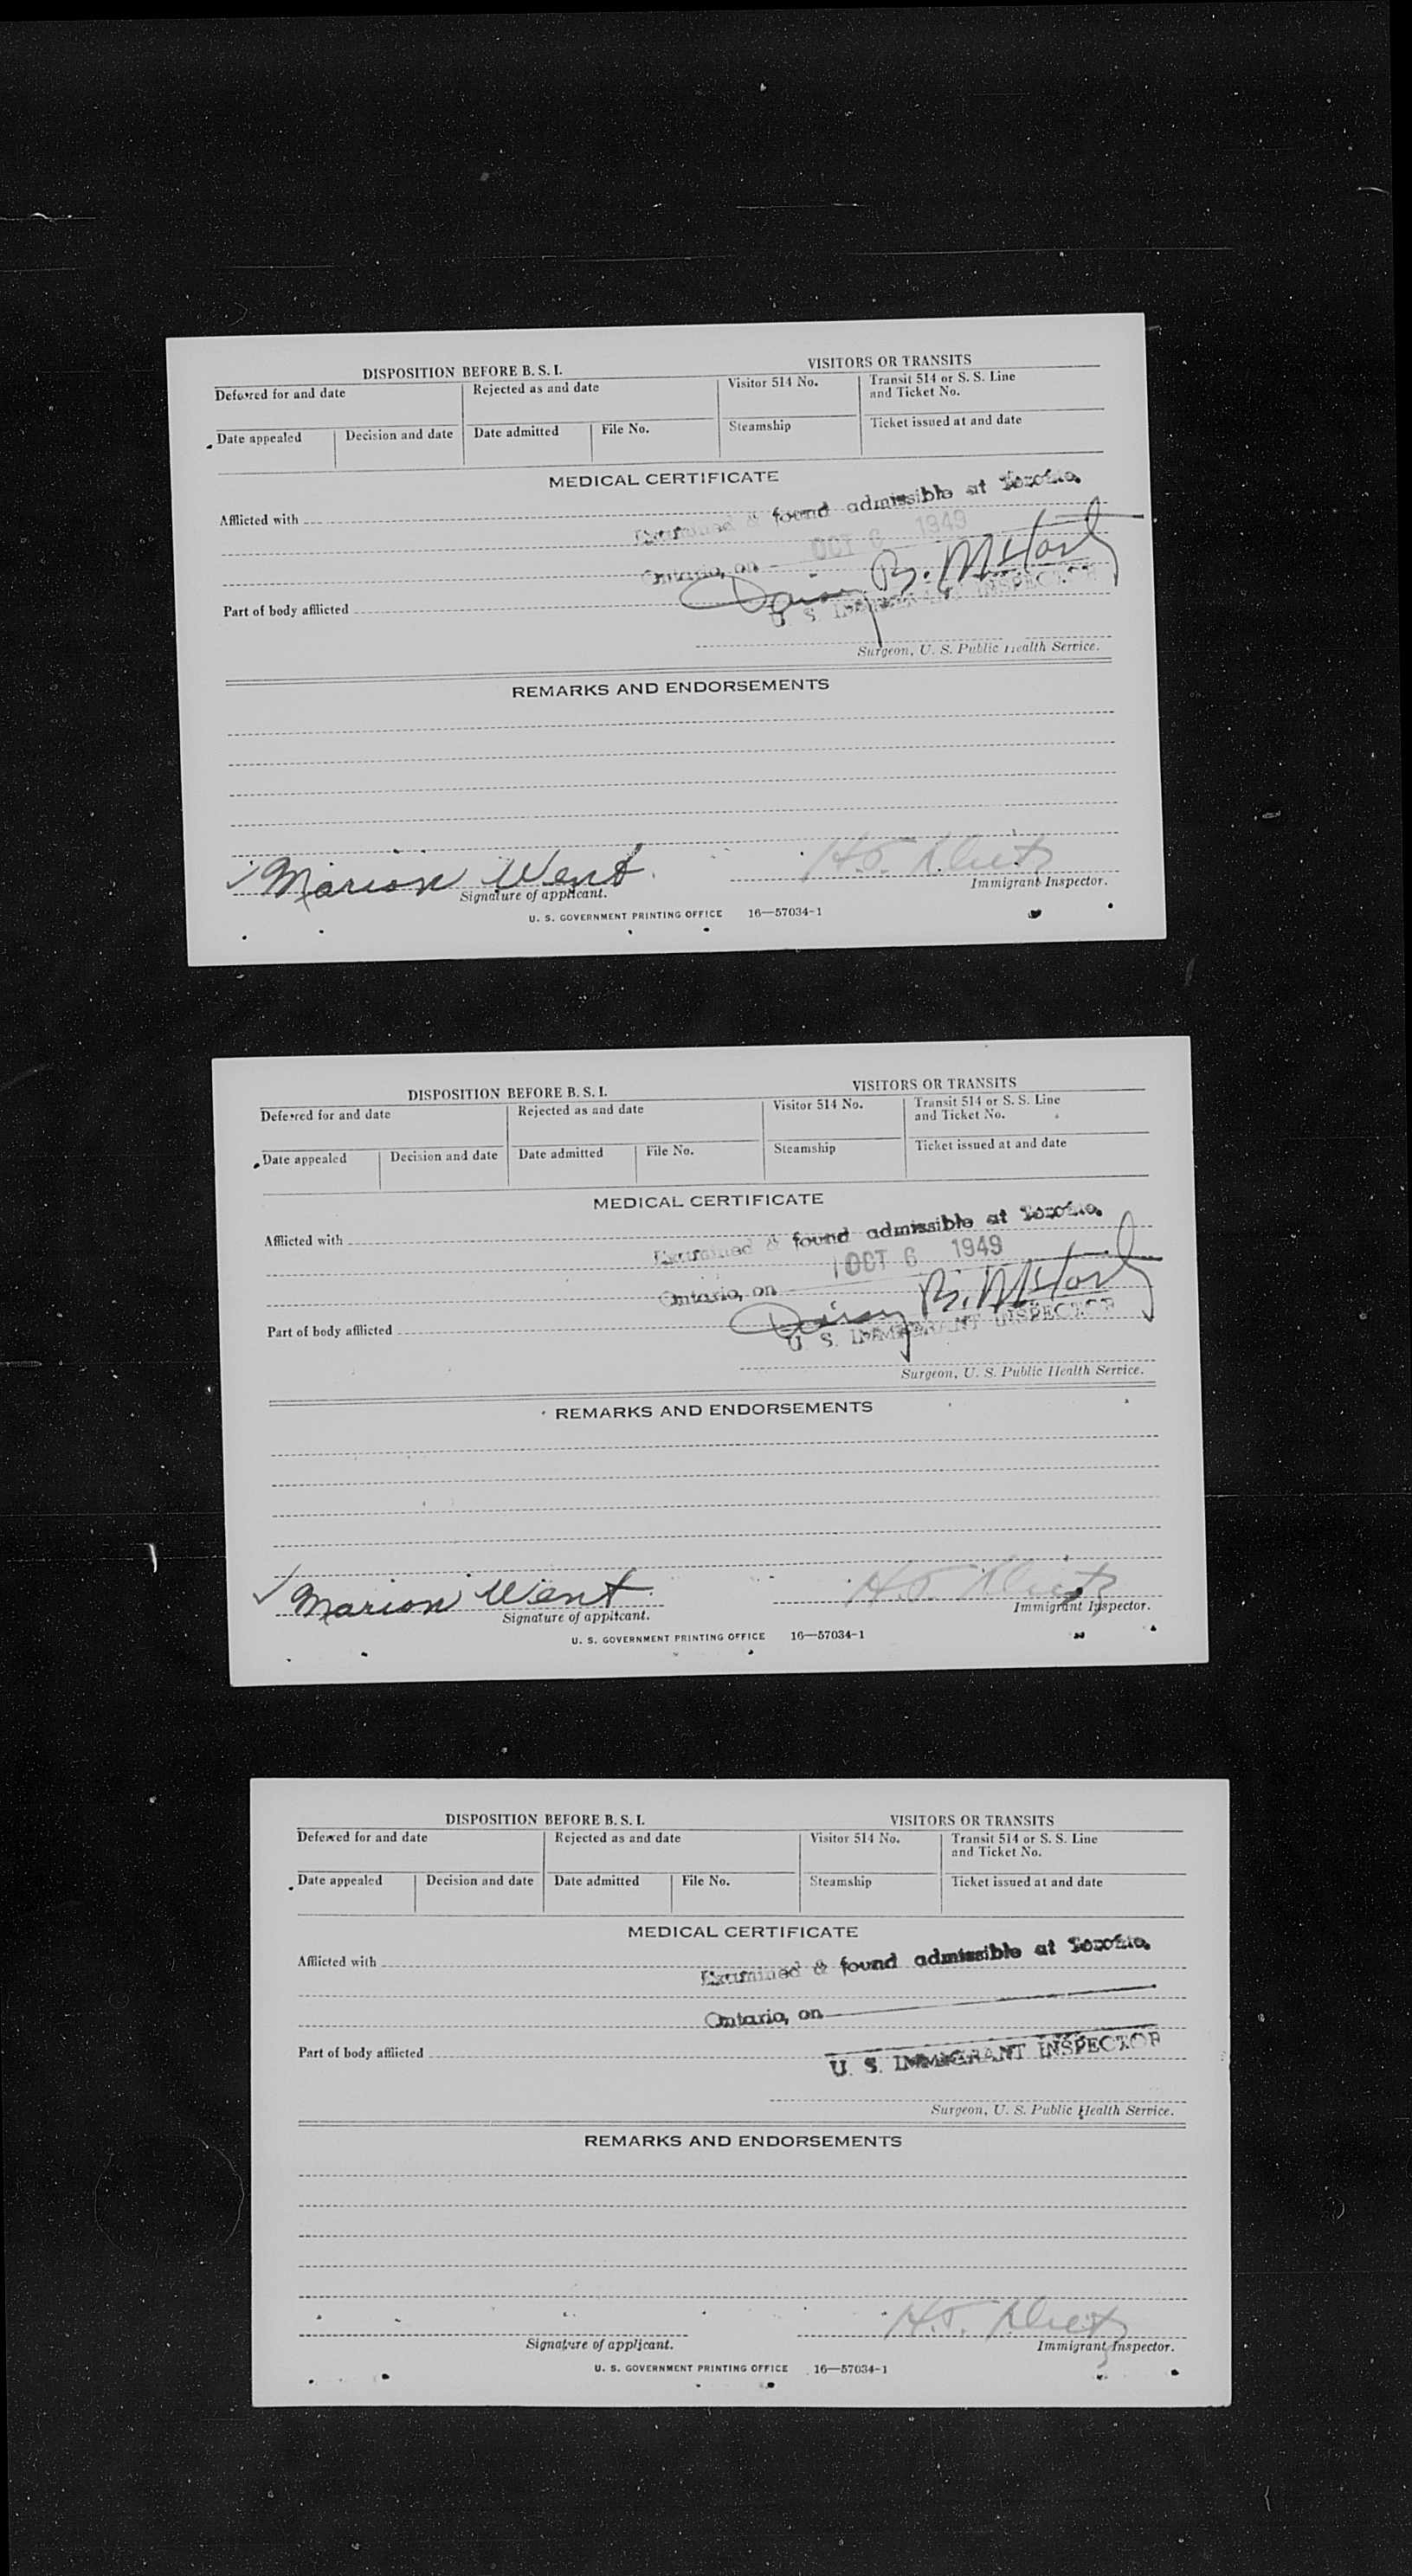 DISPOSITION BEFORE B. S. I.
VISITORS OR TRANSITS
Deferred for and date
Rejected as and date
Visitor 514 No.
Transit 514 or S. S. Line
and Ticket No.
Date appealed
Decision and date
Date admitted
File No.
Steamship
Ticket issued at and date
MEDICAL CERTIFICATE
Afflicted with
Examined & found admissible at Toronto,
OCT 6 1949
Ontario, on
Daisy B.
Part of body afflicted
U. S. IMMIGRANT INSPECTOR
Surgeon, U. S. Public Health Service.
REMARKS AND ENDORSEMENTS
Marion Went
H.J.
Signature of applicant.
Immigrant Inspector.
U. S. GOVERNMENT PRINTING OFFICE 16—57034-1
DISPOSITION BEFORE B. S. I.
VISITORS OR TRANSITS
Deferred for and date
Rejected as and date
Visitor 514 No.
Transit 514 or S. S. Line
and Ticket No.
Date appealed
Decision and date
Date admitted
File No.
Steamship
Ticket issued at and date
MEDICAL CERTIFICATE
Afflicted with
Examined & found admissible at Toronto,
OCT 6 1949
Ontario, on
Daisy B.
Part of body afflicted
U. S. IMMIGRANT INSPECTOR
Surgeon, U. S. Public Health Service.
REMARKS AND ENDORSEMENTS
Marion Went
H.J.
Signature of applicant.
Immigrant Inspector.
U. S. GOVERNMENT PRINTING OFFICE 16—57034-1
DISPOSITION BEFORE B. S. I.
VISITORS OR TRANSITS
Deferred for and date
Rejected as and date
Visitor 514 No.
Transit 514 or S. S. Line
and Ticket No.
Date appealed
Decision and date
Date admitted
File No.
Steamship
Ticket issued at and date
MEDICAL CERTIFICATE
Afflicted with
Examined & found admissible at Toronto,
Ontario, on
Part of body afflicted
U. S. IMMIGRANT INSPECTOR
Surgeon, U. S. Public Health Service.
REMARKS AND ENDORSEMENTS
H.J.
Signature of applicant.
Immigrant Inspector.
U. S. GOVERNMENT PRINTING OFFICE 16—57034-1